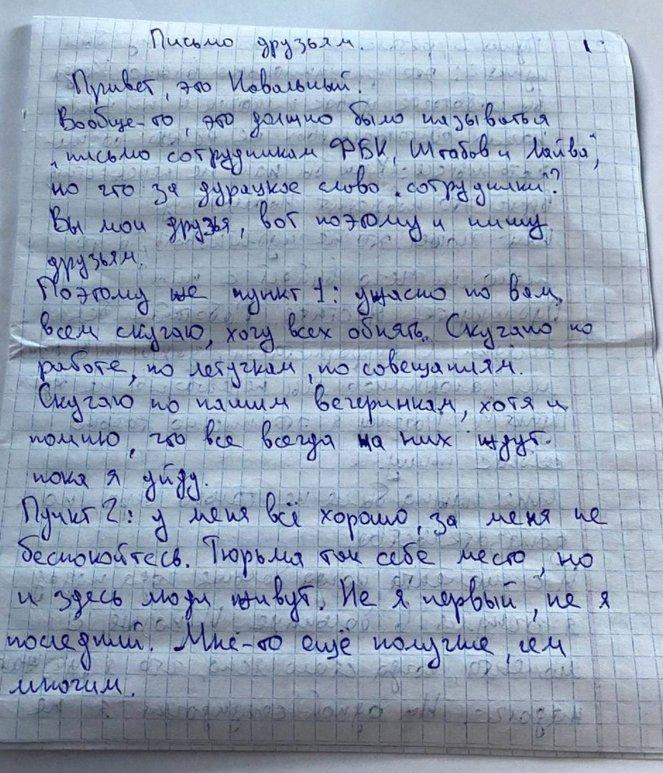 Письмо друзьям. 1.
Привет, это Навальный.
Вообще-то, это должно было называться
„письмо сотрудникам ФБК, Штабов и Лайва",
но что за дурацкое слово „сотрудники"?
Вы мои друзья, вот поэтому и пишу
друзьям.
Поэтому же пункт 1: ужасно по вам
всем скучаю, хочу всех обнять. Скучаю по
работе, по летучкам, по совещаниям.
Скучаю по нашим вечеринкам, хотя и
помню, что все всегда на них ждут
пока я уйду.
Пункт 2: у меня всё хорошо, за меня не
беспокойтесь. Тюрьма так себе место, но
и здесь люди живут. Не я первый, не я
последний. Мне-то ещё получше, чем
многим.